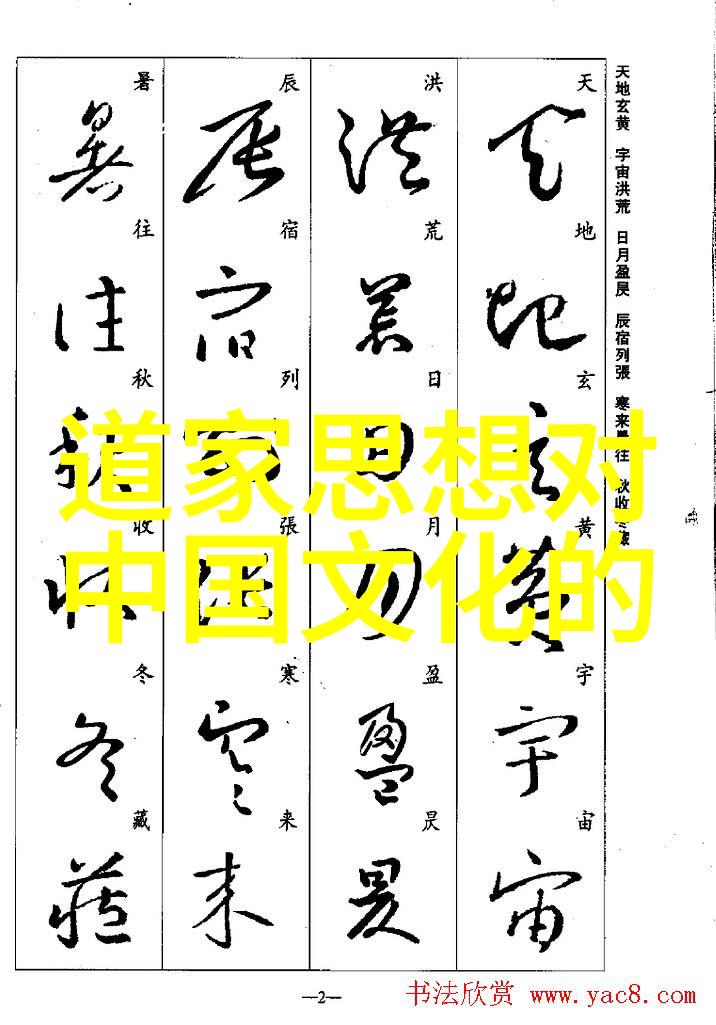 天地玄黄 宇宙洪荒 日月盈昃 辰宿列張 寒来暑往 秋收冬藏
天
地
玄
黄
宇
宙
洪
荒
日
月
盈
昃
辰
宿
列
張
寒
来
暑
往
秋
收
冬
藏
道家思想对
中国文化的
—2—
书法欣赏 www.yac8.com